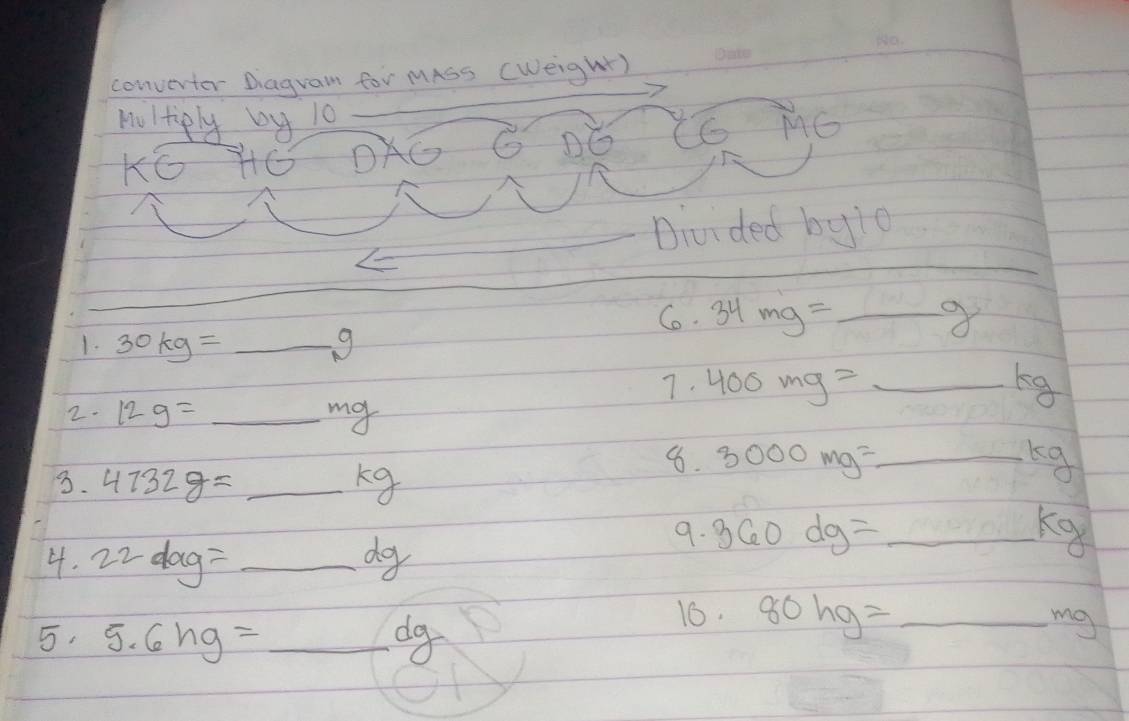 Date
No.
Converter Diagram for MASS (Weight)
Multiply by 10
KG HG DAG G DG CG MG
Divided by 10
1. 30 kg = ____ g
2. 12 g = ____ mg
3. 4732 g = ____ kg
4. 22 dag = ____ dg
5. 5.6 hg = ____ dg
6. 34 mg = ____ g
7. 400 mg = ____ kg
8. 3000 mg = ____ kg
9. 360 dg = ____ kg
10. 80 hg = ____ mg